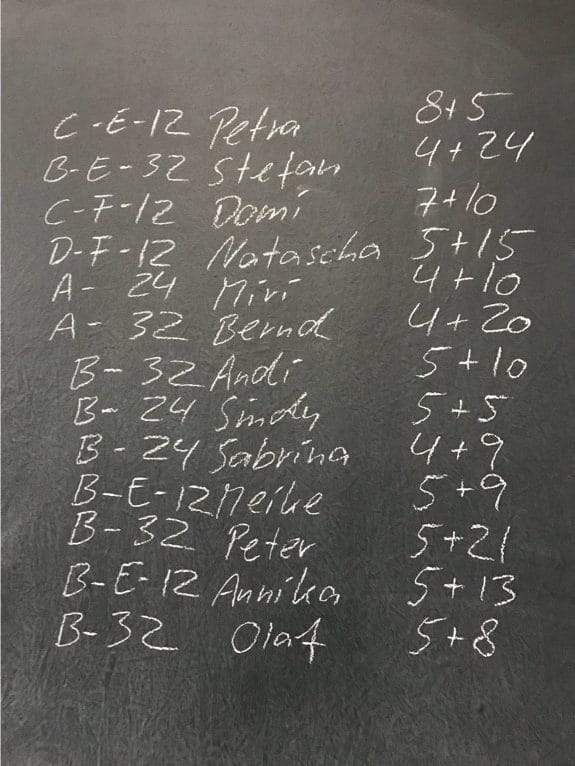 C-E-12 Petra 8+5
B-E-32 Stefan 4+24
C-F-12 Domi 7+10
D-F-12 Natascha 5+15
A- 24 Miri 4+10
A- 32 Bernd 4+20
B- 32 Andi 5+10
B- 24 Sindy 5+5
B- 24 Sabrina 4+9
B-E-12 Meike 5+9
B-32 Peter 5+21
B-E-12 Annika 5+13
B-32 Olaf 5+8